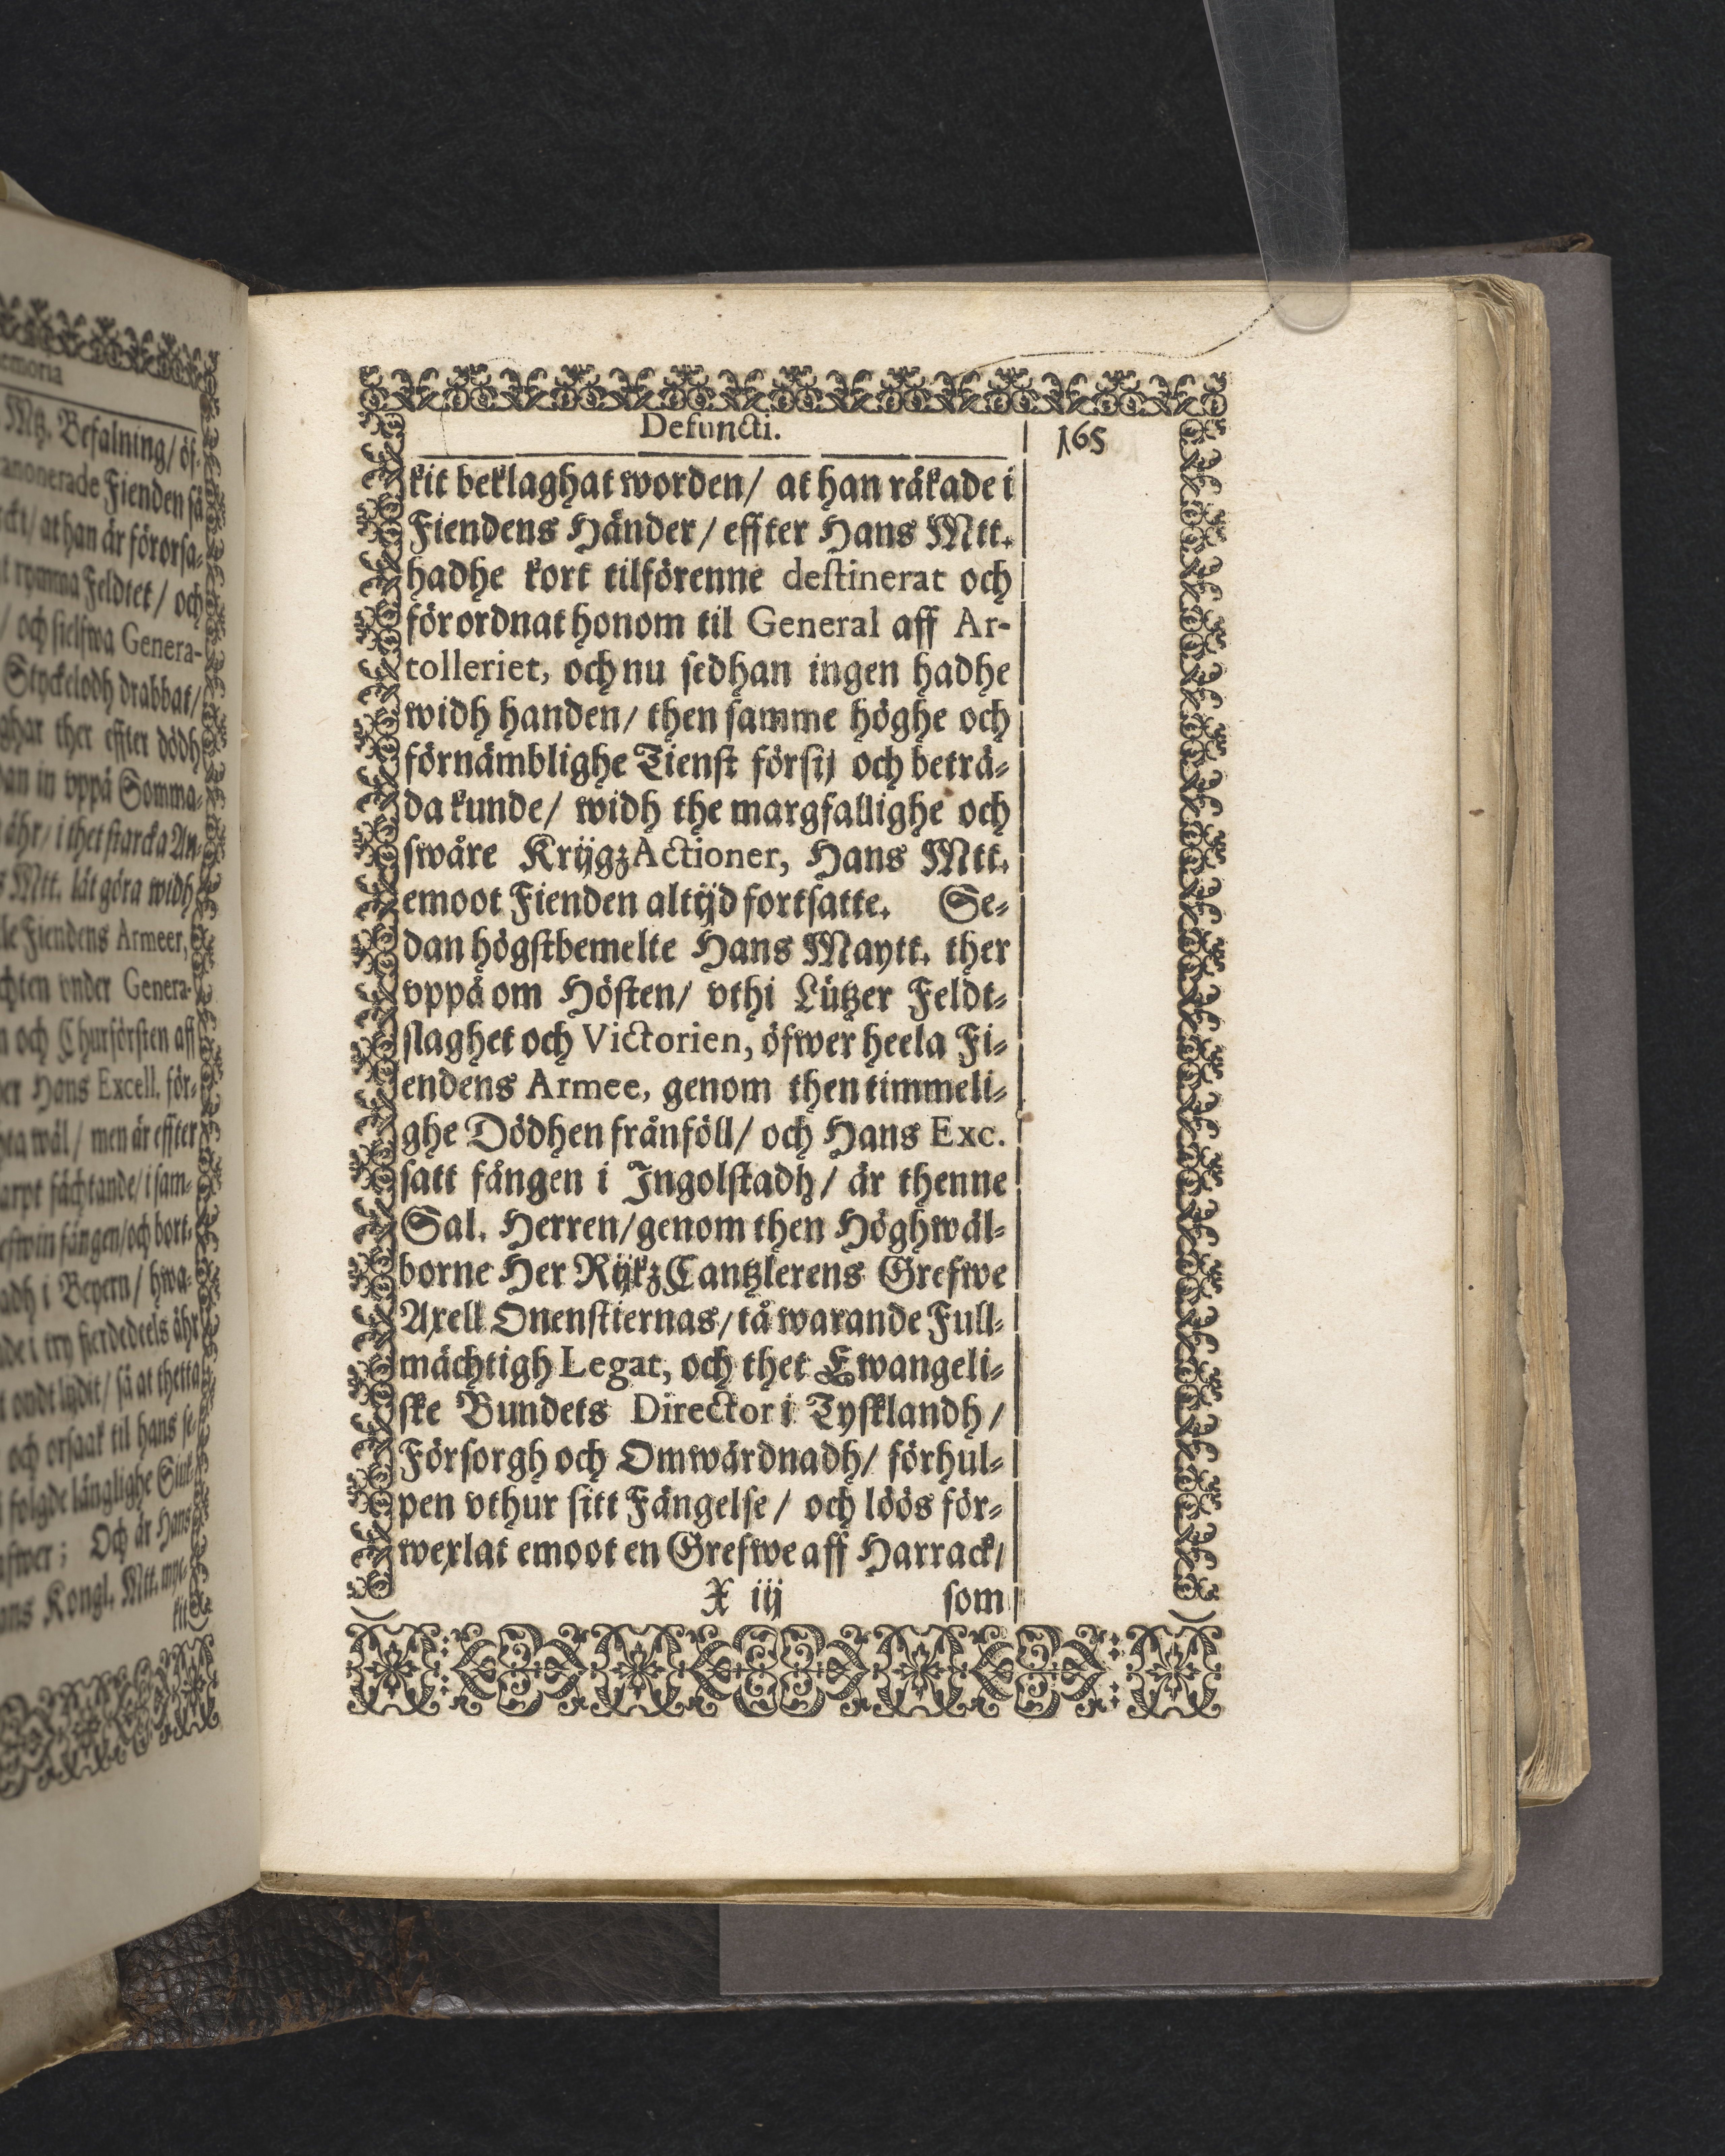 emoria
Mtz. Befalning/ öf-
anonerade Fienden så
ckt/ at han är förorsa-
t rymma Feldtet/ och
/ och sielfwa Genera-
Styckelodh drabbat/
ghar ther effter dödh
dan in vppå Somma-
ähr/ i thet starcka An-
s Mtt. lät göra widh
lle Fiendens Armeer,
chten vnder Genera-
n och Churförsten aff
er Hans Excell. för-
wäl/ men är effter
arpt fächtande/ i sam-
efwin fången/ och bort-
adh i Beyern/ hwa-
de i try fierdedeels ähr
t ondt lydit/ så at thetta
och orsaak til hans se-
folgde långlighe Siuk-
fwer; Och är Hans
ans Kongl. Mtt. myc-
kit
Defuncti.
165
kit beklaghat worden/ at han råkade i
Fiendens Händer/ effter Hans Mtt.
hadhe kort tilförenne destinerat och
förordnat honom til General aff Ar-
tolleriet, och nu sedhan ingen hadhe
widh handen/ then samme höghe och
förnämblighe Tienst försij och beträ-
da kunde/ widh the margfallighe och
swåre KrijgzActioner, Hans Mtt.
emoot Fienden altijd fortsatte. Se-
dan högstbemelte Hans Maytt. ther
vppå om Hösten/ vthi Lützer Feldt-
slaghet och Victorien, öfwer heela Fi-
endens Armee, genom then timmeli-
ghe Dödhen frånföll/ och Hans Exc.
satt fången i Ingolstadh/ är thenne
Sal. Herren/ genom then Höghwäl-
borne Her RijkzCantzlerens Grefwe
Axell Oxenstiernas/ tå warande Full-
mächtigh Legat, och thet Ewangeli-
ske Bundets Director i Tysklandh/
Försorgh och Omwårdnadh/ förhul-
pen vthur sitt Fängelse/ och löös för-
wexlat emoot en Grefwe aff Harrack/
X iij som